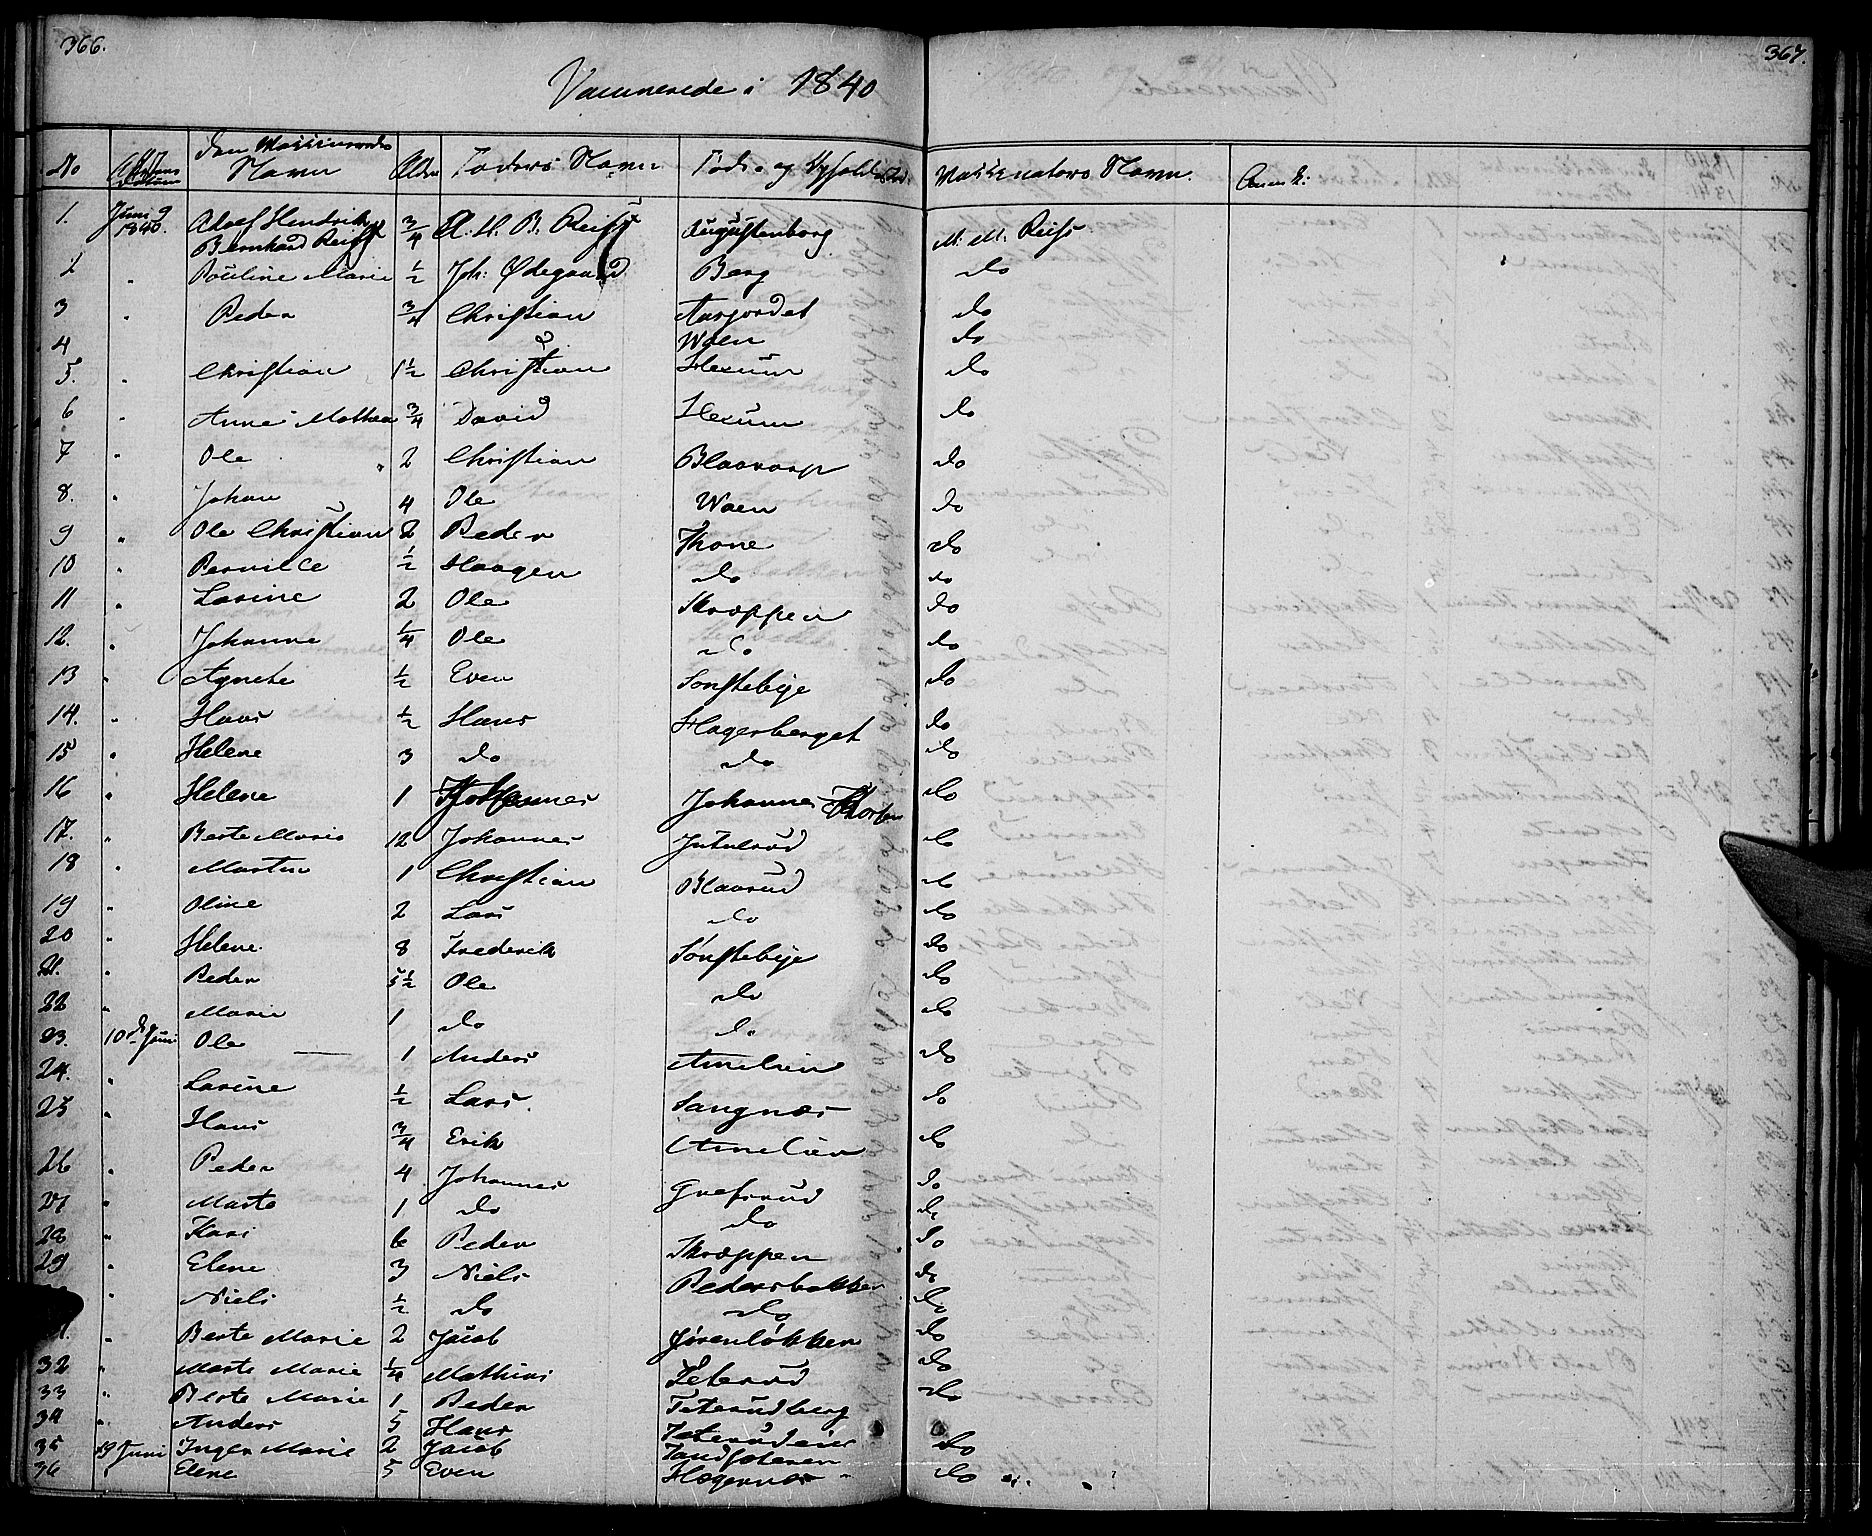 366.
367.
Vacinerede i 1840
No Attestens Datum den Vaksineredes Navn Alder Faders Navn Føde og Opholdssted Vaksinators Navn. Anm:
1. Juni 9 1840. Adolf Hendrik Bernhard Reiss 3/4 A. H. B. Reiss Augustenborg M. M. Reiss
2 " Pouline Marie 1/2 Joh: Ødegaard Berg do
3 " Peder 3/4 Christian Aasjordet do
4 Moen do
5. " Christian 1 1/2 Christian Hexum do
6 " Anne Mathea 3/4 David Hexum do
7 " Ole " 2 Christian Blaavarp do
8. " Johan 4 Ole Moen do
9 " Ole Christian 2 Peder Throne do
10 " Pernille 1/2 Haagen do do
11 " Larine 2 Ole Skræppen do
12. " Johanne 1/4 Ole do do
13 " Agnete 1/2 Even Sønstebye do
14. " Hans 1/2 Hans Hagerberget do
15 " Helene 3 do do do
16 " Helene 1 Johannes Johannes do
17. " Berte Marie 12 Johannes Jutulrud do
18 " Martin 1 Christian Blaarud do
19 " Oline 2 Lars do do
20 " Helene 8 Frederik Sønstebye do
21. " Peder 5 1/2 Ole do do
22 " Marie 1 do do do
23. 10de Juni Ole 1 Anders Amelien do
24. " Larine 1/2 Lars Sangnæs do
25 " Hans 3/4 Erik Amelien do
26 " Peder 4 Johannes Grefsrud do
27 " Marte 1 do do do
28 " Kari 6 Peder Skræppen do
29 " Elene 3 Niels Pedersbakken do
" Niels 1/2 do do do
" Berte Marie 2 Jacob Jørenløkken do
32 " Marte Marie 1/4 Mathias Teterud do
33 " Berte Marie 1 Peder Teterudberg do
34 " Anders 5 Hans Teterudeie
35 19 Juni Inger Marie 2 Jacob do
36 " Elene 5 Even Hægernæs do